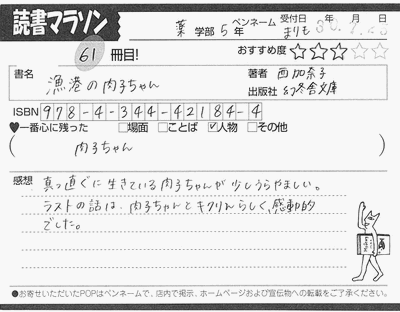 読書マラソン
61 冊目!
薬 学部 5 年
ペンネーム まりも
受付日 30.7.23 年 月 日
おすすめ度 ☆☆☆☆☆
書名 漁港の肉子ちゃん
著者 西加奈子
出版社 幻冬舎文庫
ISBN 978-4-344-42184-4
♥一番心に残った □場面 □ことば ☑人物 □その他
( 肉子ちゃん )
感想
真っ直ぐに生きている肉子ちゃんが少しうらやましい。
ラストの話は、肉子ちゃんとキクりんらしく、感動的
でした。
●お寄せいただいたPOPはペンネームで、店内で掲示、ホームページおよび宣伝物への転載をご了承ください。